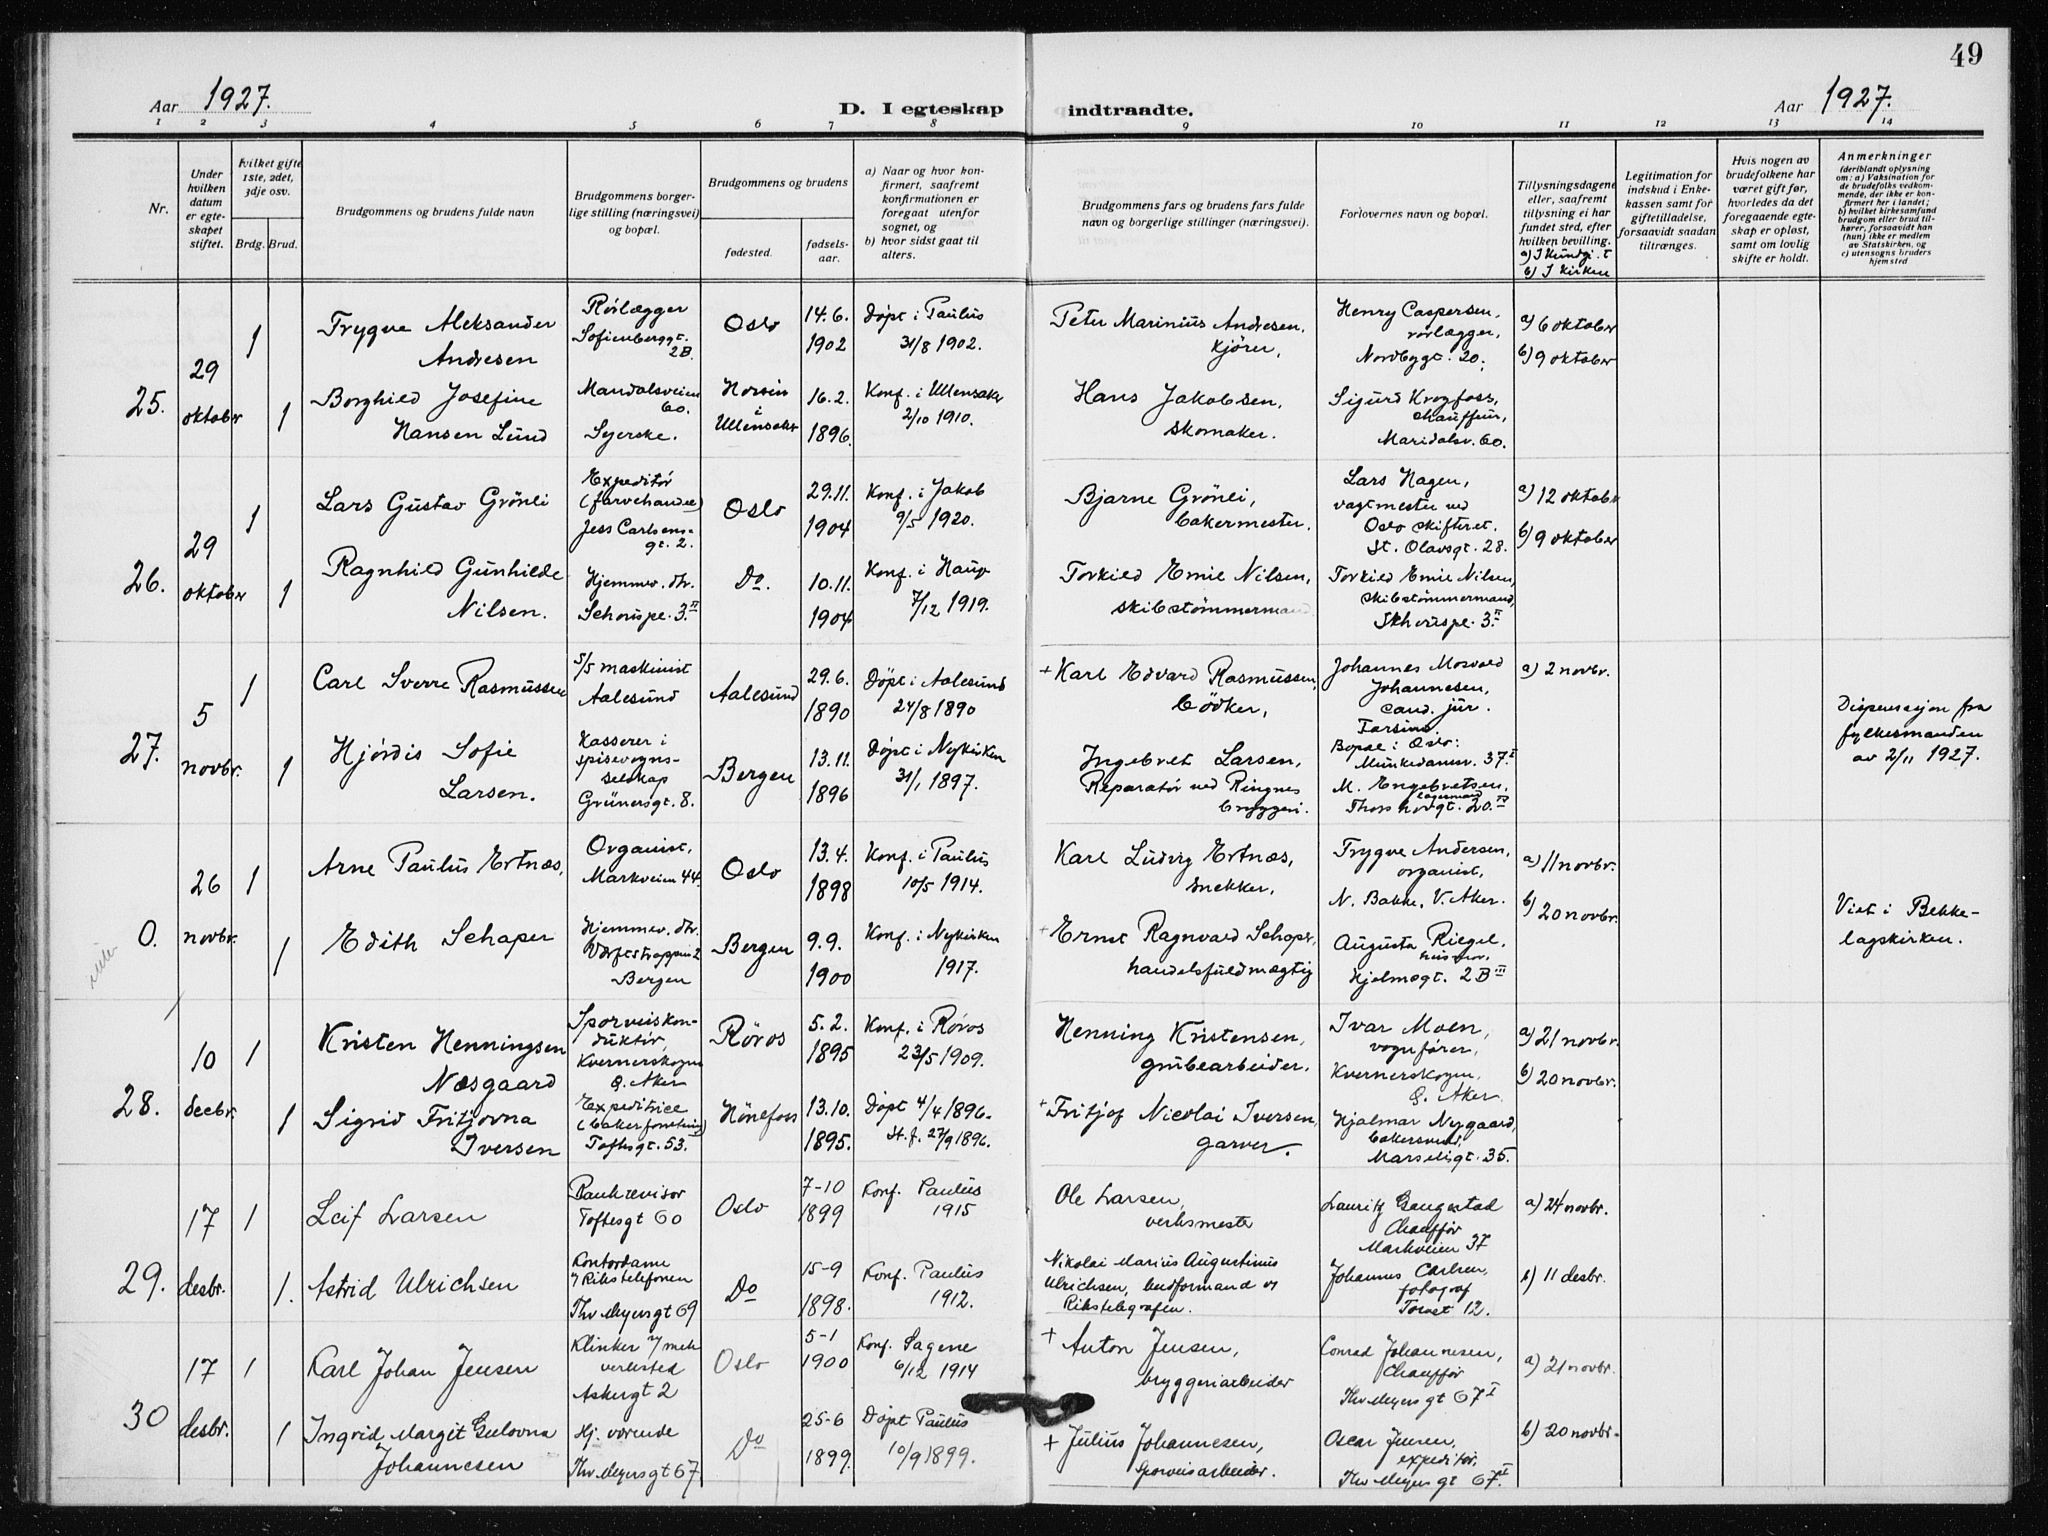 49
Aar 1927.
D. I egteskap indtraadte.
Aar 1927.
1 2 3 4 5 6 7 8 9 10 11 12 13 14
Nr.
Under hvilken datum er egteskapet stiftet.
Hvilket gifte 1ste, 2det, 3dje osv.
Brdg. Brud.
Brudgommens og brudens fulde navn
Brudgommens borgerlige stilling (næringsvei) og bopæl.
Brudgommens og brudens
fødested.
fødselsaar.
a) Naar og hvor konfirmert, saafremt konfirmationen er foregaat utenfor sognet, og
b) hvor sidst gaat til alters.
Brudgommens fars og brudens fars fulde navn og borgerlige stillinger (næringsvei).
Forlovernes navn og bopæl.
Tillysningsdagene eller, saafremt tillysning ei har fundet sted, efter hvilken bevilling.
a) I Kundgj.t
b) I kirken
Legitimation for indskud i Enkekassen samt for giftetilladelse, forsaavidt saadan tiltrænges.
Hvis nogen av brudefolkene har været gift før, hvorledes da det foregaaende egteskap er opløst, samt om lovlig skifte er holdt.
Anmerkninger
(deriblandt oplysning om: a) Vaksination for de brudefolks vedkommende, der ikke er konfirmert her i landet; b) hvilket kirkesamfund brudgom eller brud tilhører, forsaavidt han (hun) ikke er medlem av Statskirken, og c) utensogns bruders hjemsted
25.
29 oktober
1
Trygve Aleksander
Andresen
Rørlægger
Sofienberggt.
2B.
Oslo
14.6.
1902
Døpt i Paulus
31/8 1902.
Peter Marinius Andresen,
kjører,
Henry Caspersen,
rørlægger,
Nordbygt. 20.
a) 6 oktober
b) 9 oktober
1
Borghild Josefine
Hansen Lund
Maridalsveien
60.
Syerske.
Horsin
i
Ullensaker
16.2.
1896.
Konf. i Ullensaker
2/10 1910.
Hans Jakobsen,
skomaker.
Sigurd Krogfoss,
chauffeur,
Maridalsv. 60.
26.
29 oktober
1
Lars Gustav Grönli
Expeditör
(farvehandel)
Jess Carlsens-
gt. 2.
Oslo
29.11.
1904
Konf. i Jakob
9/5 1920.
Bjarne Grönli,
bakermester.
Lars Hagen,
vagtmester ved
Oslo skifteret.
St. Olavsgt. 28.
a) 12 oktober
b) 9 oktober
1
Ragnhild Gunhilde
Nilsen.
Hjemmev. dtr.
Schouspl. 3 II
Do.
10.11.
1904
Konf. i Haug
7/12 1919.
Torkild Emil Nilsen,
skibstömmermand
Torkild Emil Nilsen,
skibstömmermand,
Skhouspl. 3 II
27.
5 novbr.
1
Carl Sverre Rasmussen
S/S maskinist
Aalesund
Aalesund
29.6.
1890
Døpt i Aalesund
24/8 1890
+ Karl Edvard Rasmussen,
bödker,
Johannes Mosvold
Johannesen,
cand. jur.
Farsund.
Bopæl i Oslo:
Munkedamsv. 37 I
a) 2 novbr.
Dispensasjon fra
fylkesmanden
av 2/11 1927.
1
Hjördis Sofie
Larsen.
Kasserer i
spisevogns-
selskap
Grünersgt. 8.
Bergen
13.11.
1896
Døpt i Nykirken
31/1 1897.
Ingebret Larsen,
Reparatör ved Ringnes
bryggeri.
M. Engebretsen,
lagermand
Thorshovgt. 20 IV
0.
26 novbr.
1
Arne Paulus Ertnæs,
Organist,
Markveien 44
Oslo
13.4.
1898
Konf. i Paulus
10/5 1914.
Karl Ludvig Ertnæs,
snekker,
Trygve Andersen,
organist,
N. Bakke, V. Aker.
a) 11 novbr.
b) 20 novbr.
Viet i Bekke-
lagskirken.
1
Edith Schaper
Hjemmev. dtr.
Værftstrappen 2
Bergen
Bergen
9.9.
1900
Konf. i Nykirken
1917.
+ Ernst Ragnvald Schaper,
handelsfuldmægtig
Augusta Riegel,
husmor,
Hjelmsgt. 2 B III
28.
10 decbr.
1
Kristen Henningsen
Næsgaard
Sporveiskon-
duktör,
Kvernerskogen
Ö. Aker
Röros
5.2.
1895
Konf. i Röros
23/5 1909.
Henning Kristensen,
grubearbeider.
Ivar Moen,
vognfører,
Kvernerskogen,
Ö. Aker
a) 21 novbr.
b) 20 novbr.
1
Sigrid Fritjovna
Iversen
Expeditrice
(bakerforretning)
Toftesgt. 53.
Hönefoss
13.10.
1895.
Døpt 4/4 1896.
St. f. 27/9 1896.
+ Fritjof Nicolai Iversen,
garver.
Hjalmar Nygaard,
bakersvend,
Marselisgt. 35.
29.
17 desbr.
1
Leif Larsen
Bankrevisor
Toftesgt 60
Oslo
7-10
1899
Konf. Paulus
1915
Ole Larsen,
verksmester
Lauritz Gaugestad
Chauffør
Markveien 37
a) 24 novbr.
1.
Astrid Ulrichsen
Kontordame
v/ Rikstelefonen
Thv Meyersgt 69
Do
15-9
1898.
Konf. Paulus
1912.
Nikolai Marius Augustinus
Ulrichsen, budformand v/
Rikstelegrafen.
Johannes Carlsen,
fotograf
Torvet 12.
b) 11 desbr.
30
17 desbr.
1
Karl Johan Jensen
Klinker v/ mek
verksted
Askergt 2
Oslo
5-1
1900
Konf. Sagene
6/12 1914
+ Anton Jensen,
bryggeriarbeider
Conrad Johannesen,
Chauffør
Thv Meyersgt 67 I
a) 21 novbr.
1
Ingrid Margit Gulovna
Johannesen
Hj. værende
Thv Meyersgt 67
Do
25-6
1899.
Døpt Paulus
10/9 1899.
+ Julius Johannesen,
Sporveisarbeider.
Oscar Jensen,
expeditør,
Thv Meyersgt 67 I
b) 20 novbr.